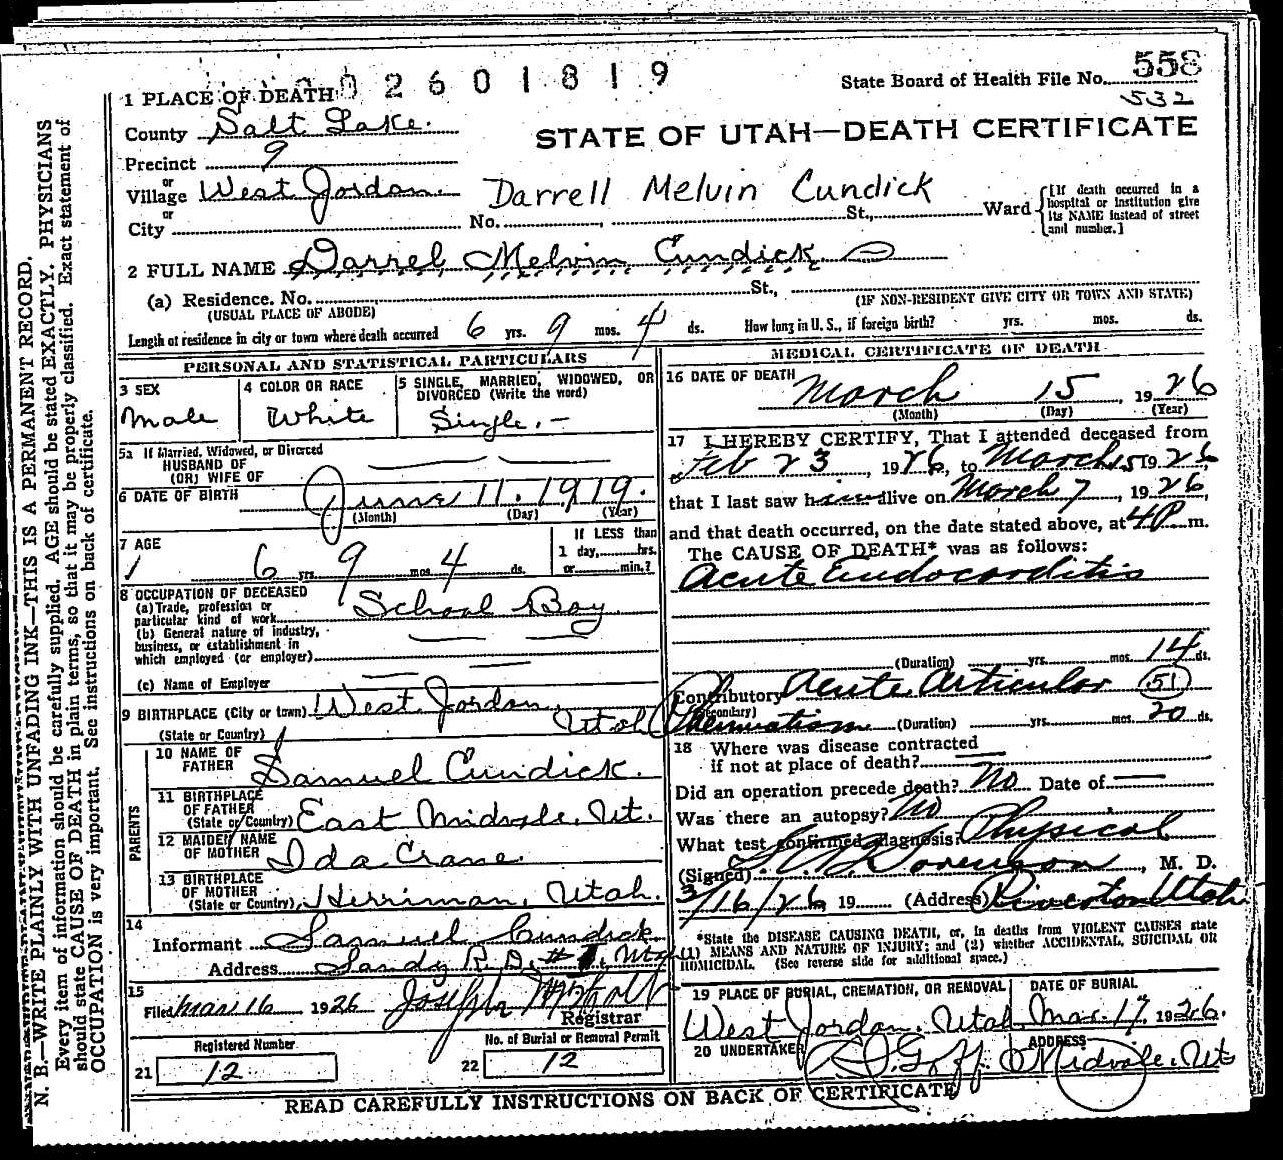 02601819
State Board of Health File No. 558
532
1 PLACE OF DEATH
County Salt Lake.
STATE OF UTAH—DEATH CERTIFICATE
Precinct 9
or
Village West Jordan.
Darrell Melvin Cundick
or
City
No. St., Ward
[If death occurred in a hospital or institution give its NAME instead of street and number.]
2 FULL NAME Darrel Melvin Cundick
(a) Residence. No. St.,
(USUAL PLACE OF ABODE)
(IF NON-RESIDENT GIVE CITY OR TOWN AND STATE)
Length of residence in city or town where death occurred 6 yrs. 9 mos. 4 ds. How long in U. S., if foreign birth? yrs. mos. ds.
PERSONAL AND STATISTICAL PARTICULARS
3 SEX
Male
4 COLOR OR RACE
White
5 SINGLE, MARRIED, WIDOWED, OR DIVORCED (Write the word)
Single.—
5a If Married, Widowed, or Divorced
HUSBAND OF
(OR) WIFE OF
6 DATE OF BIRTH June 11. 1919.
(Month) (Day) (Year)
7 AGE
6 yrs. 9 mos. 4 ds.
If LESS than
1 day, hrs.
or min.?
8 OCCUPATION OF DECEASED
(a) Trade, profession or
particular kind of work School Boy
(b) General nature of industry,
business, or establishment in
which employed (or employer)
(c) Name of Employer
9 BIRTHPLACE (City or town) West Jordan,
(State or Country) Utah
PARENTS
10 NAME OF FATHER Samuel Cundick.
11 BIRTHPLACE OF FATHER
(State or Country) East Midvale, Ut.
12 MAIDEN NAME OF MOTHER Ida Crane
13 BIRTHPLACE OF MOTHER
(State or Country) Herriman, Utah.
14
Informant Samuel Cundick
Address Sandy R.D. # 1,
15
Filed Mar 16 1926 Joseph
Registrar
Registered Number
21 12
No. of Burial or Removal Permit
22 12
MEDICAL CERTIFICATE OF DEATH
16 DATE OF DEATH
March 15, 1926
(Month) (Day) (Year)
17 I HEREBY CERTIFY, That I attended deceased from
Feb 23, 1926, to March 15 1926,
that I last saw him alive on March 7, 1926,
and that death occurred, on the date stated above, at 4 P m.
The CAUSE OF DEATH* was as follows:
Acute Endocarditis
(Duration) yrs. mos. 14 ds.
Contributory Acute Articular 51
(Secondary) Rheumatism (Duration) yrs. mos. 20 ds.
18 Where was disease contracted
if not at place of death?
Did an operation precede death? No Date of —
Was there an autopsy? No
What test confirmed diagnosis? Physical
(Signed) Sorenson, M. D.
3/16/26 19 (Address) Riverton Utah
*State the DISEASE CAUSING DEATH, or, in deaths from VIOLENT CAUSES state
(1) MEANS AND NATURE OF INJURY; and (2) whether ACCIDENTAL, SUICIDAL OR
HOMICIDAL. (See reverse side for additional space.)
19 PLACE OF BURIAL, CREMATION, OR REMOVAL
West Jordan, Utah
DATE OF BURIAL
Mar. 17 1926.
20 UNDERTAKER
Goff
ADDRESS
Midvale, Ut
READ CAREFULLY INSTRUCTIONS ON BACK OF CERTIFICATE
N. B.—WRITE PLAINLY WITH UNFADING INK—THIS IS A PERMANENT RECORD.
Every item of information should be carefully supplied. AGE should be stated EXACTLY. PHYSICIANS
should state CAUSE OF DEATH in plain terms, so that it may be properly classified. Exact statement of
OCCUPATION is very important. See instructions on back of certificate.